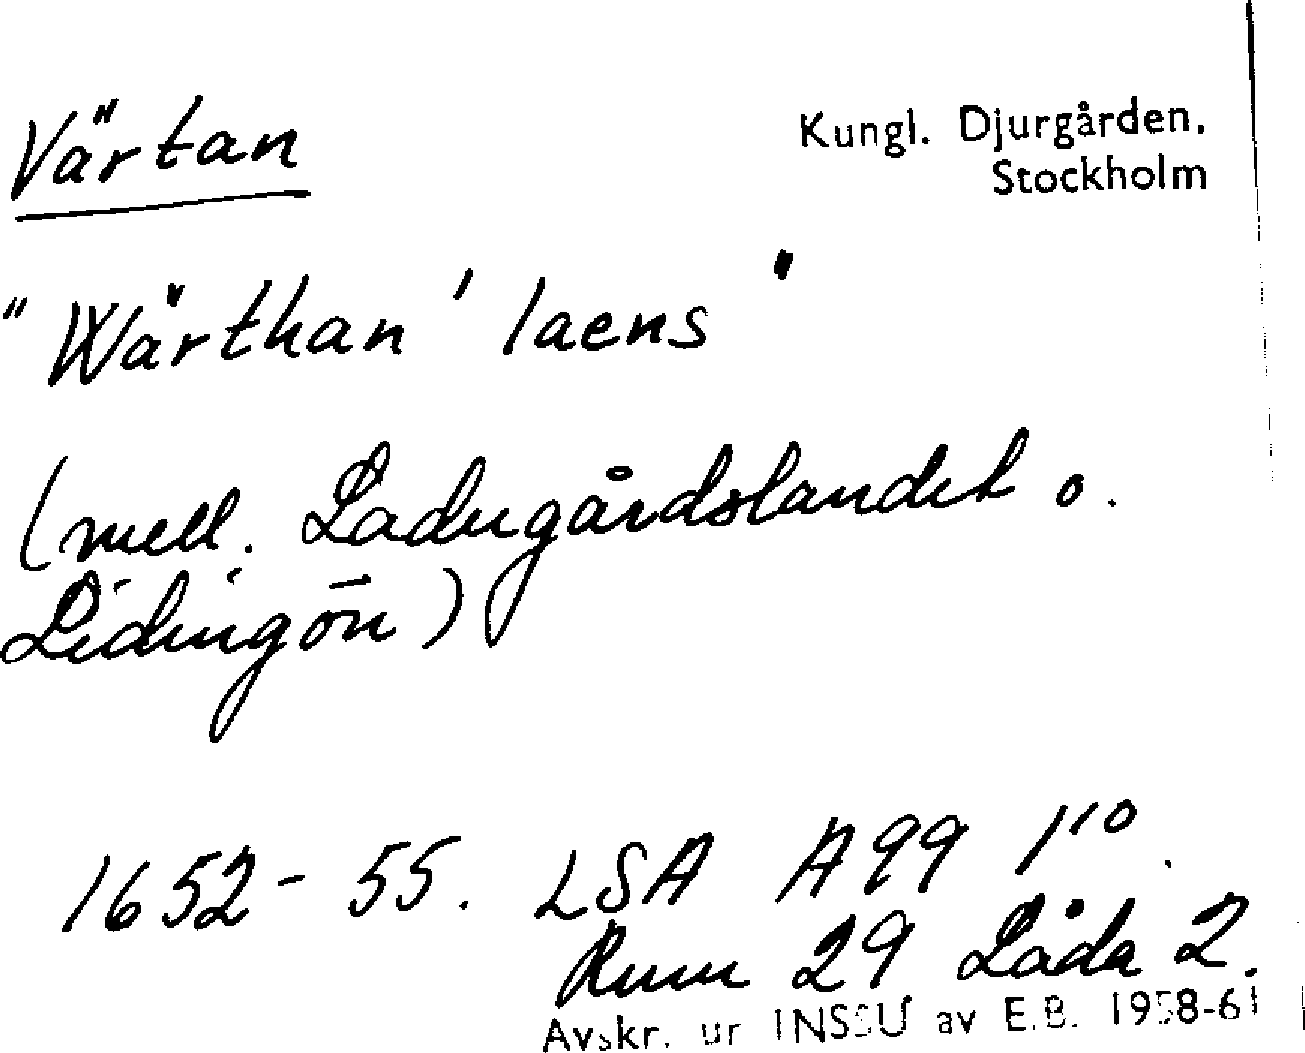 Värtan
Kungl. Djurgården.
Stockholm
"Wärthan' laens"
(mell. Ladugårdslandet o.
Lidingön)
1652-55. LSA A99 1¹⁰.
Rum 29 Låda 2.
Avskr. ur INSSU av E.B. 1958-61